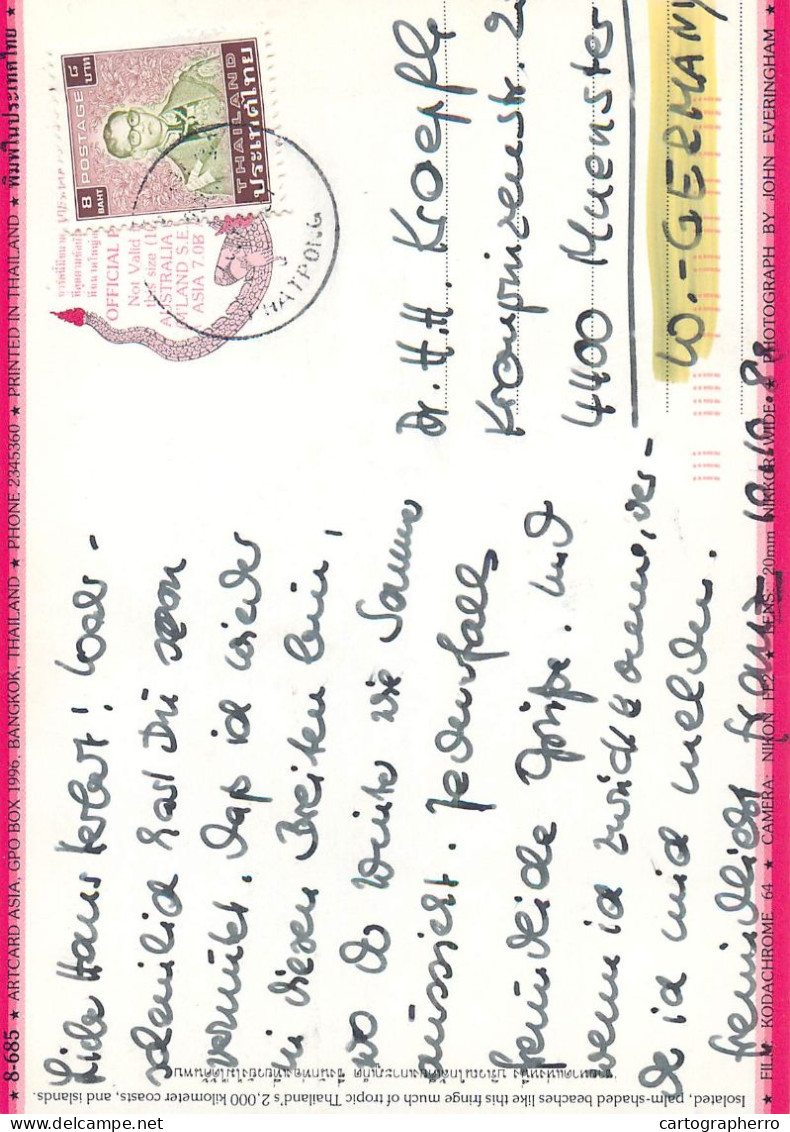 8-685 ★ ARTCARD ASIA, GPO BOX 1996, BANGKOK, THAILAND ★ PHONE 2345360 ★ PRINTED IN THAILAND ★ พิมพ์ในประเทศไทย ★
Lieber Hans Herbert! Wahr-
scheinlich hast Du schon
vermutet, daß ich wieder
in diesen Breiten bin,
wo der Winter wie Sommer
aussieht. Jedenfalls
freundliche Grüße. Und
wenn ich zurückkomme, wer-
de ich mich melden.
freundlichst Franz 10.10.8
POSTAGE
8 BAHT
๘ บาท
THAILAND
ประเทศไทย
OFFICIAL
Not Valid
this size (1
AUSTRALIA
ASIA 7.0B
PHATPONG
Dr. H.H. Kroepfl
Kronprinzenstr. 2
4400 Muenster
W.-GERMANY
Isolated, palm-shaded beaches like this fringe much of tropic Thailand's 2,000 kilometer coasts, and islands.
★ FILM: KODACHROME 64 ★ CAMERA: NIKON FE2 ★ LENS: 20mm NIKKOR WIDE ★ PHOTOGRAPH BY JOHN EVERINGHAM ★
cartographerro